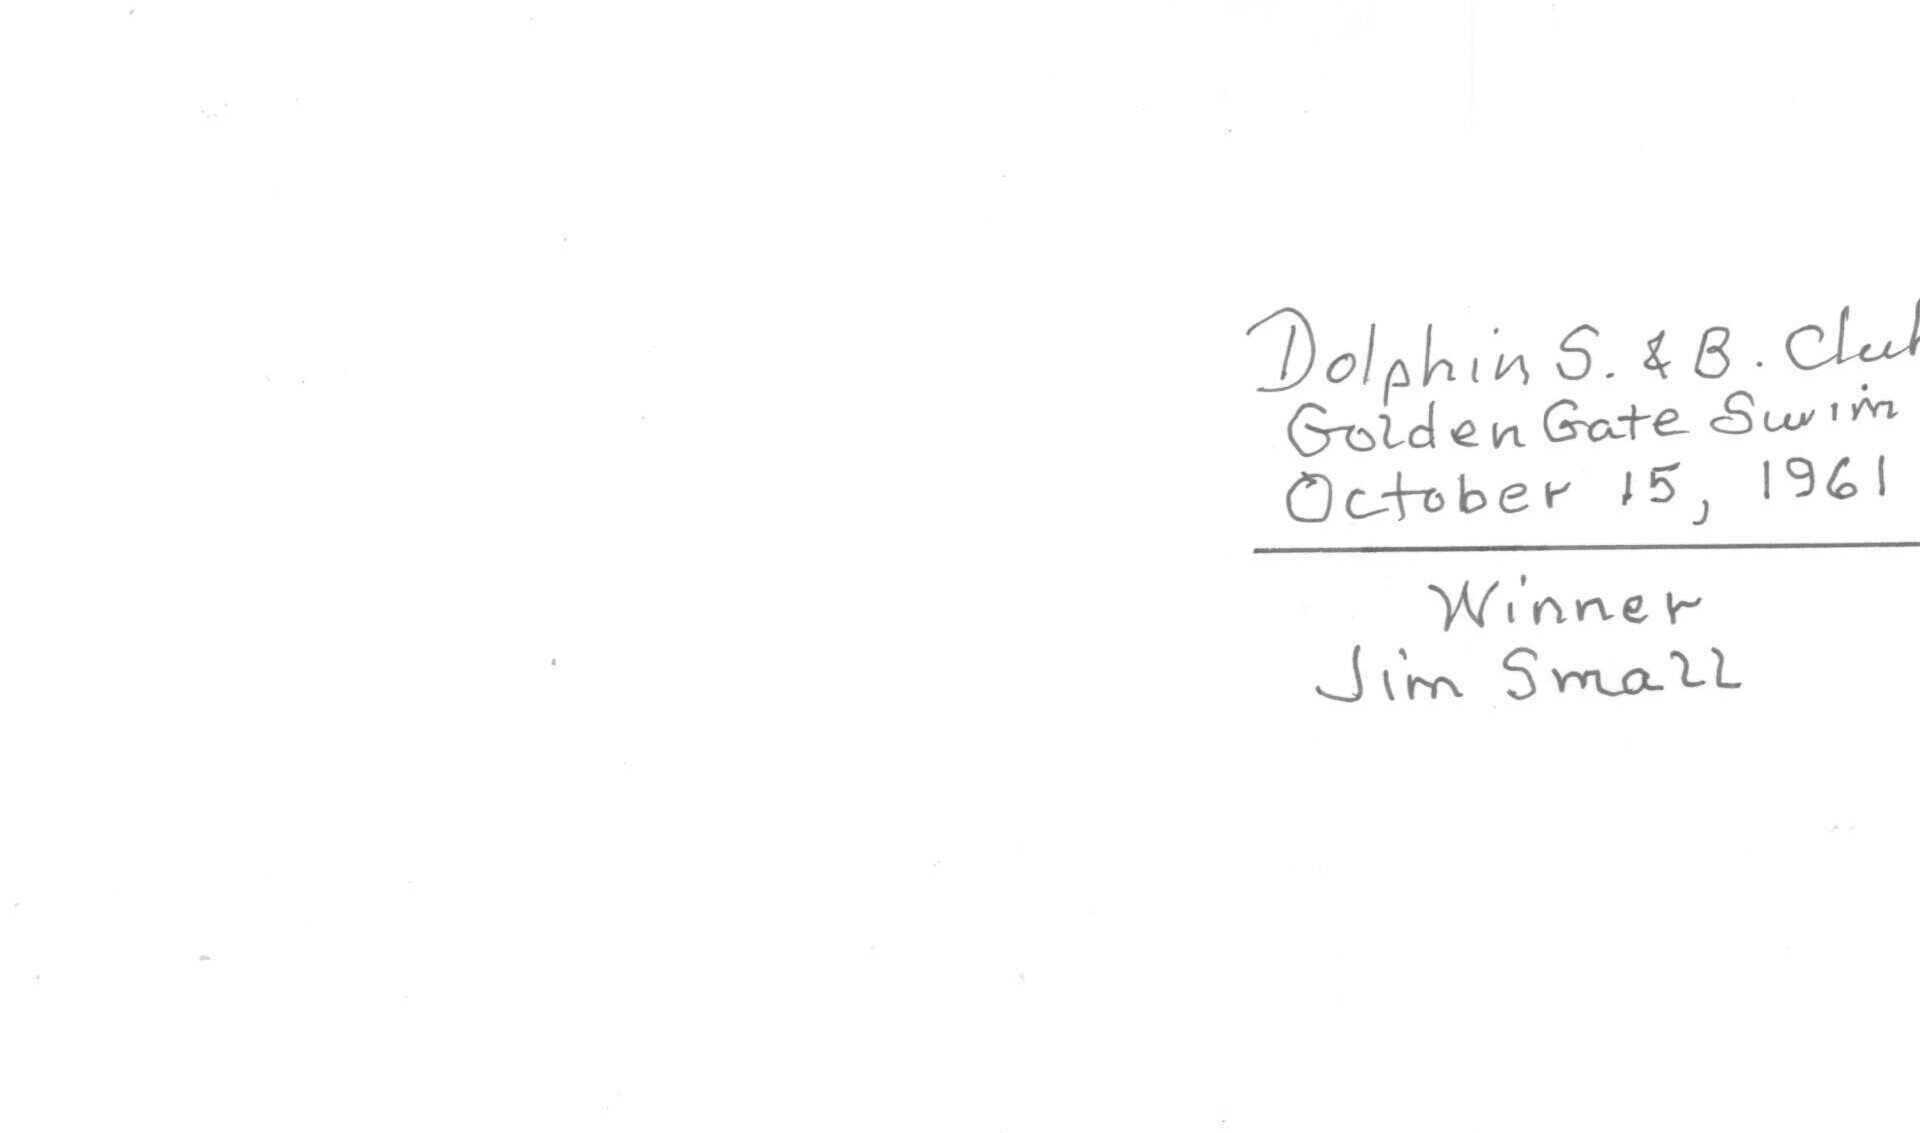 Dolphin S. & B. Club
Golden Gate Swim
October 15, 1961
Winner
Jim Small